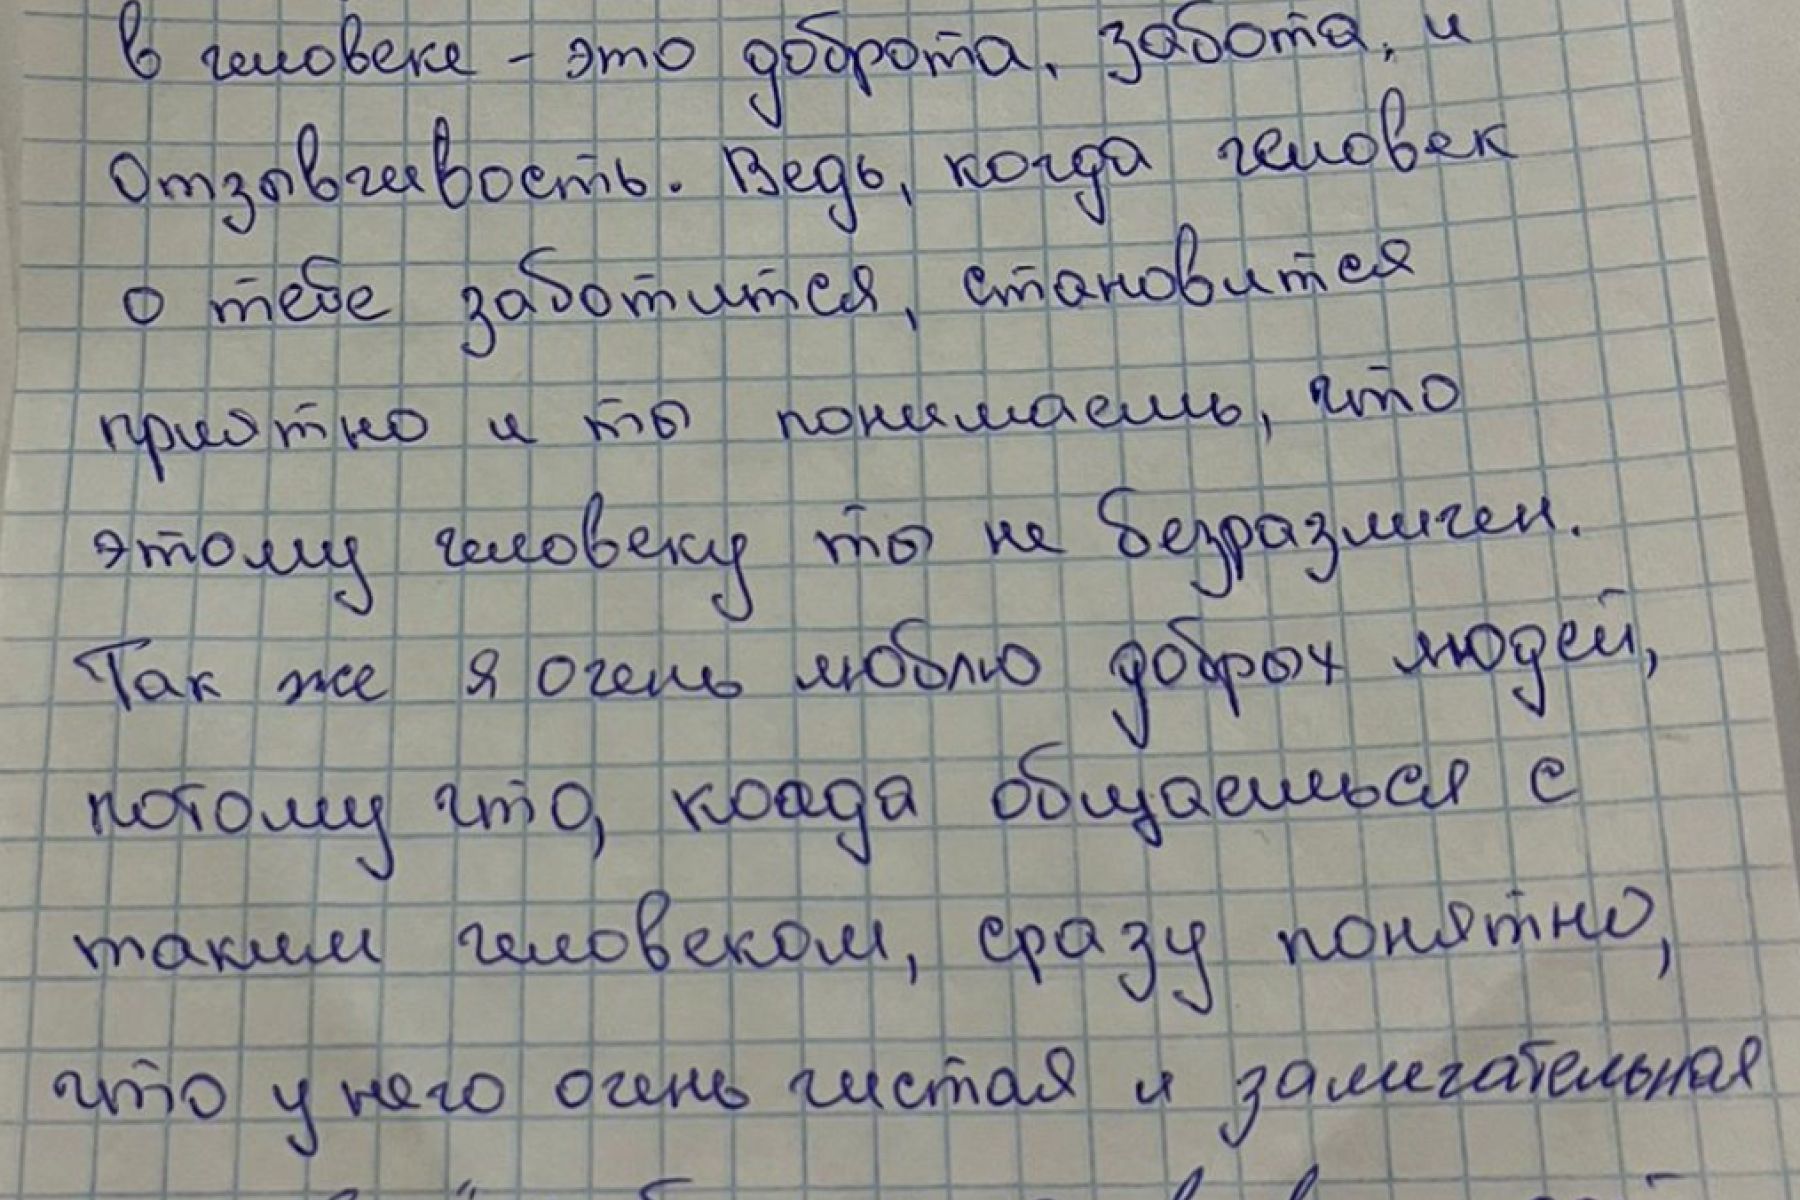 в человеке - это доброта, забота, и
отзывчивость. Ведь, когда человек
о тебе заботится, становится
приятно и ты понимаешь, что
этому человеку ты не безразличен.
Так же я очень люблю добрых людей,
потому что, когда общаешься с
таким человеком, сразу понятно,
что у него очень чистая и замигательная